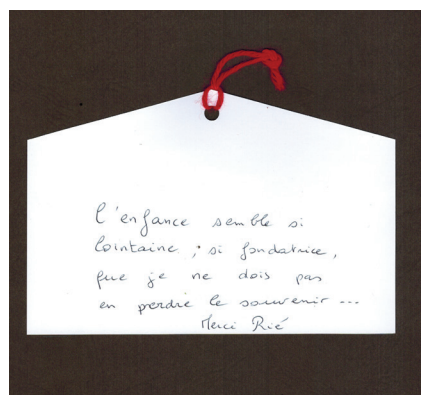 l'enfance semble si
lointaine, si fondatrice,
que je ne dois pas
en perdre le souvenir ...
Merci Rié